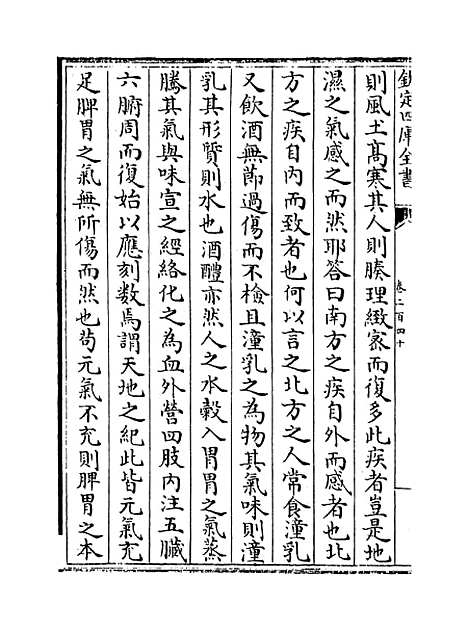 欽定四庫全書
卷二百四十
則風土髙寒其人則腠理緻宻而復多此疾者豈是地
濕之氣感之而然耶答曰南方之疾自外而感者也北
方之疾自内而致者也何以言之北方之人常食潼乳
又飲酒無節過傷而不檢且潼乳之為物其氣味則潼
乳其形質則水也酒醴亦然人之水穀入胃胃之氣蒸
騰其氣與味宣之經絡化之為血外營四肢内注五臟
六腑周而復始以應刻数焉謂天地之紀此皆元氣充
足脾胃之氣無所傷而然也茍元氣不充則脾胃之本